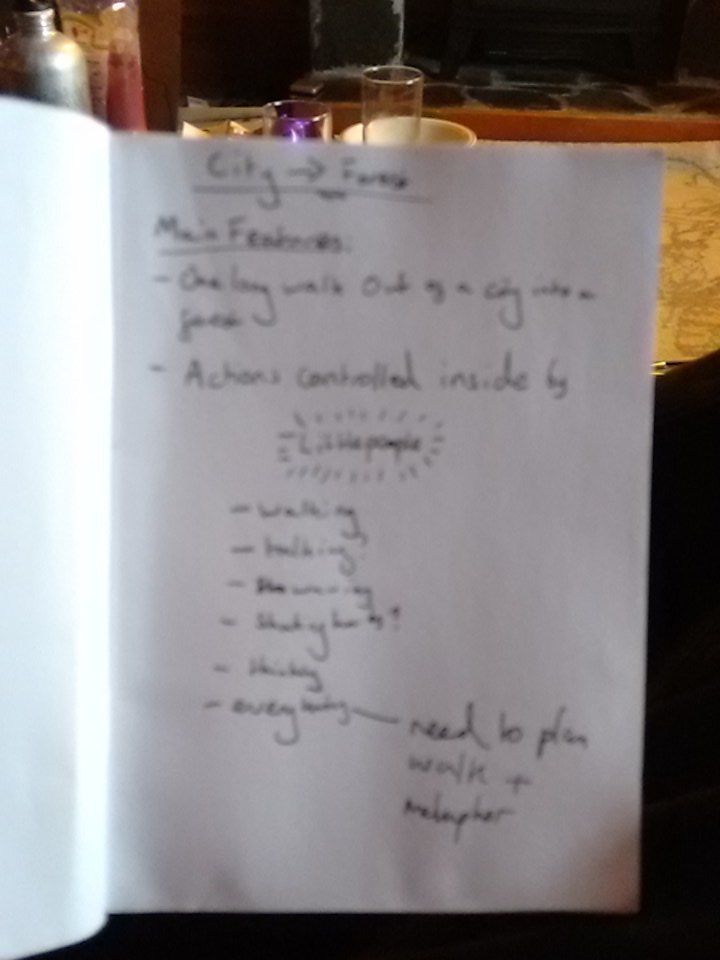 City → Forest
Main Features:
- One long walk Out of a city into a
forest
- Actions controlled inside by
Little people
- walking
- talking
- Shaking hands?
- thinking
- everything — need to plan
walk +
metaphor